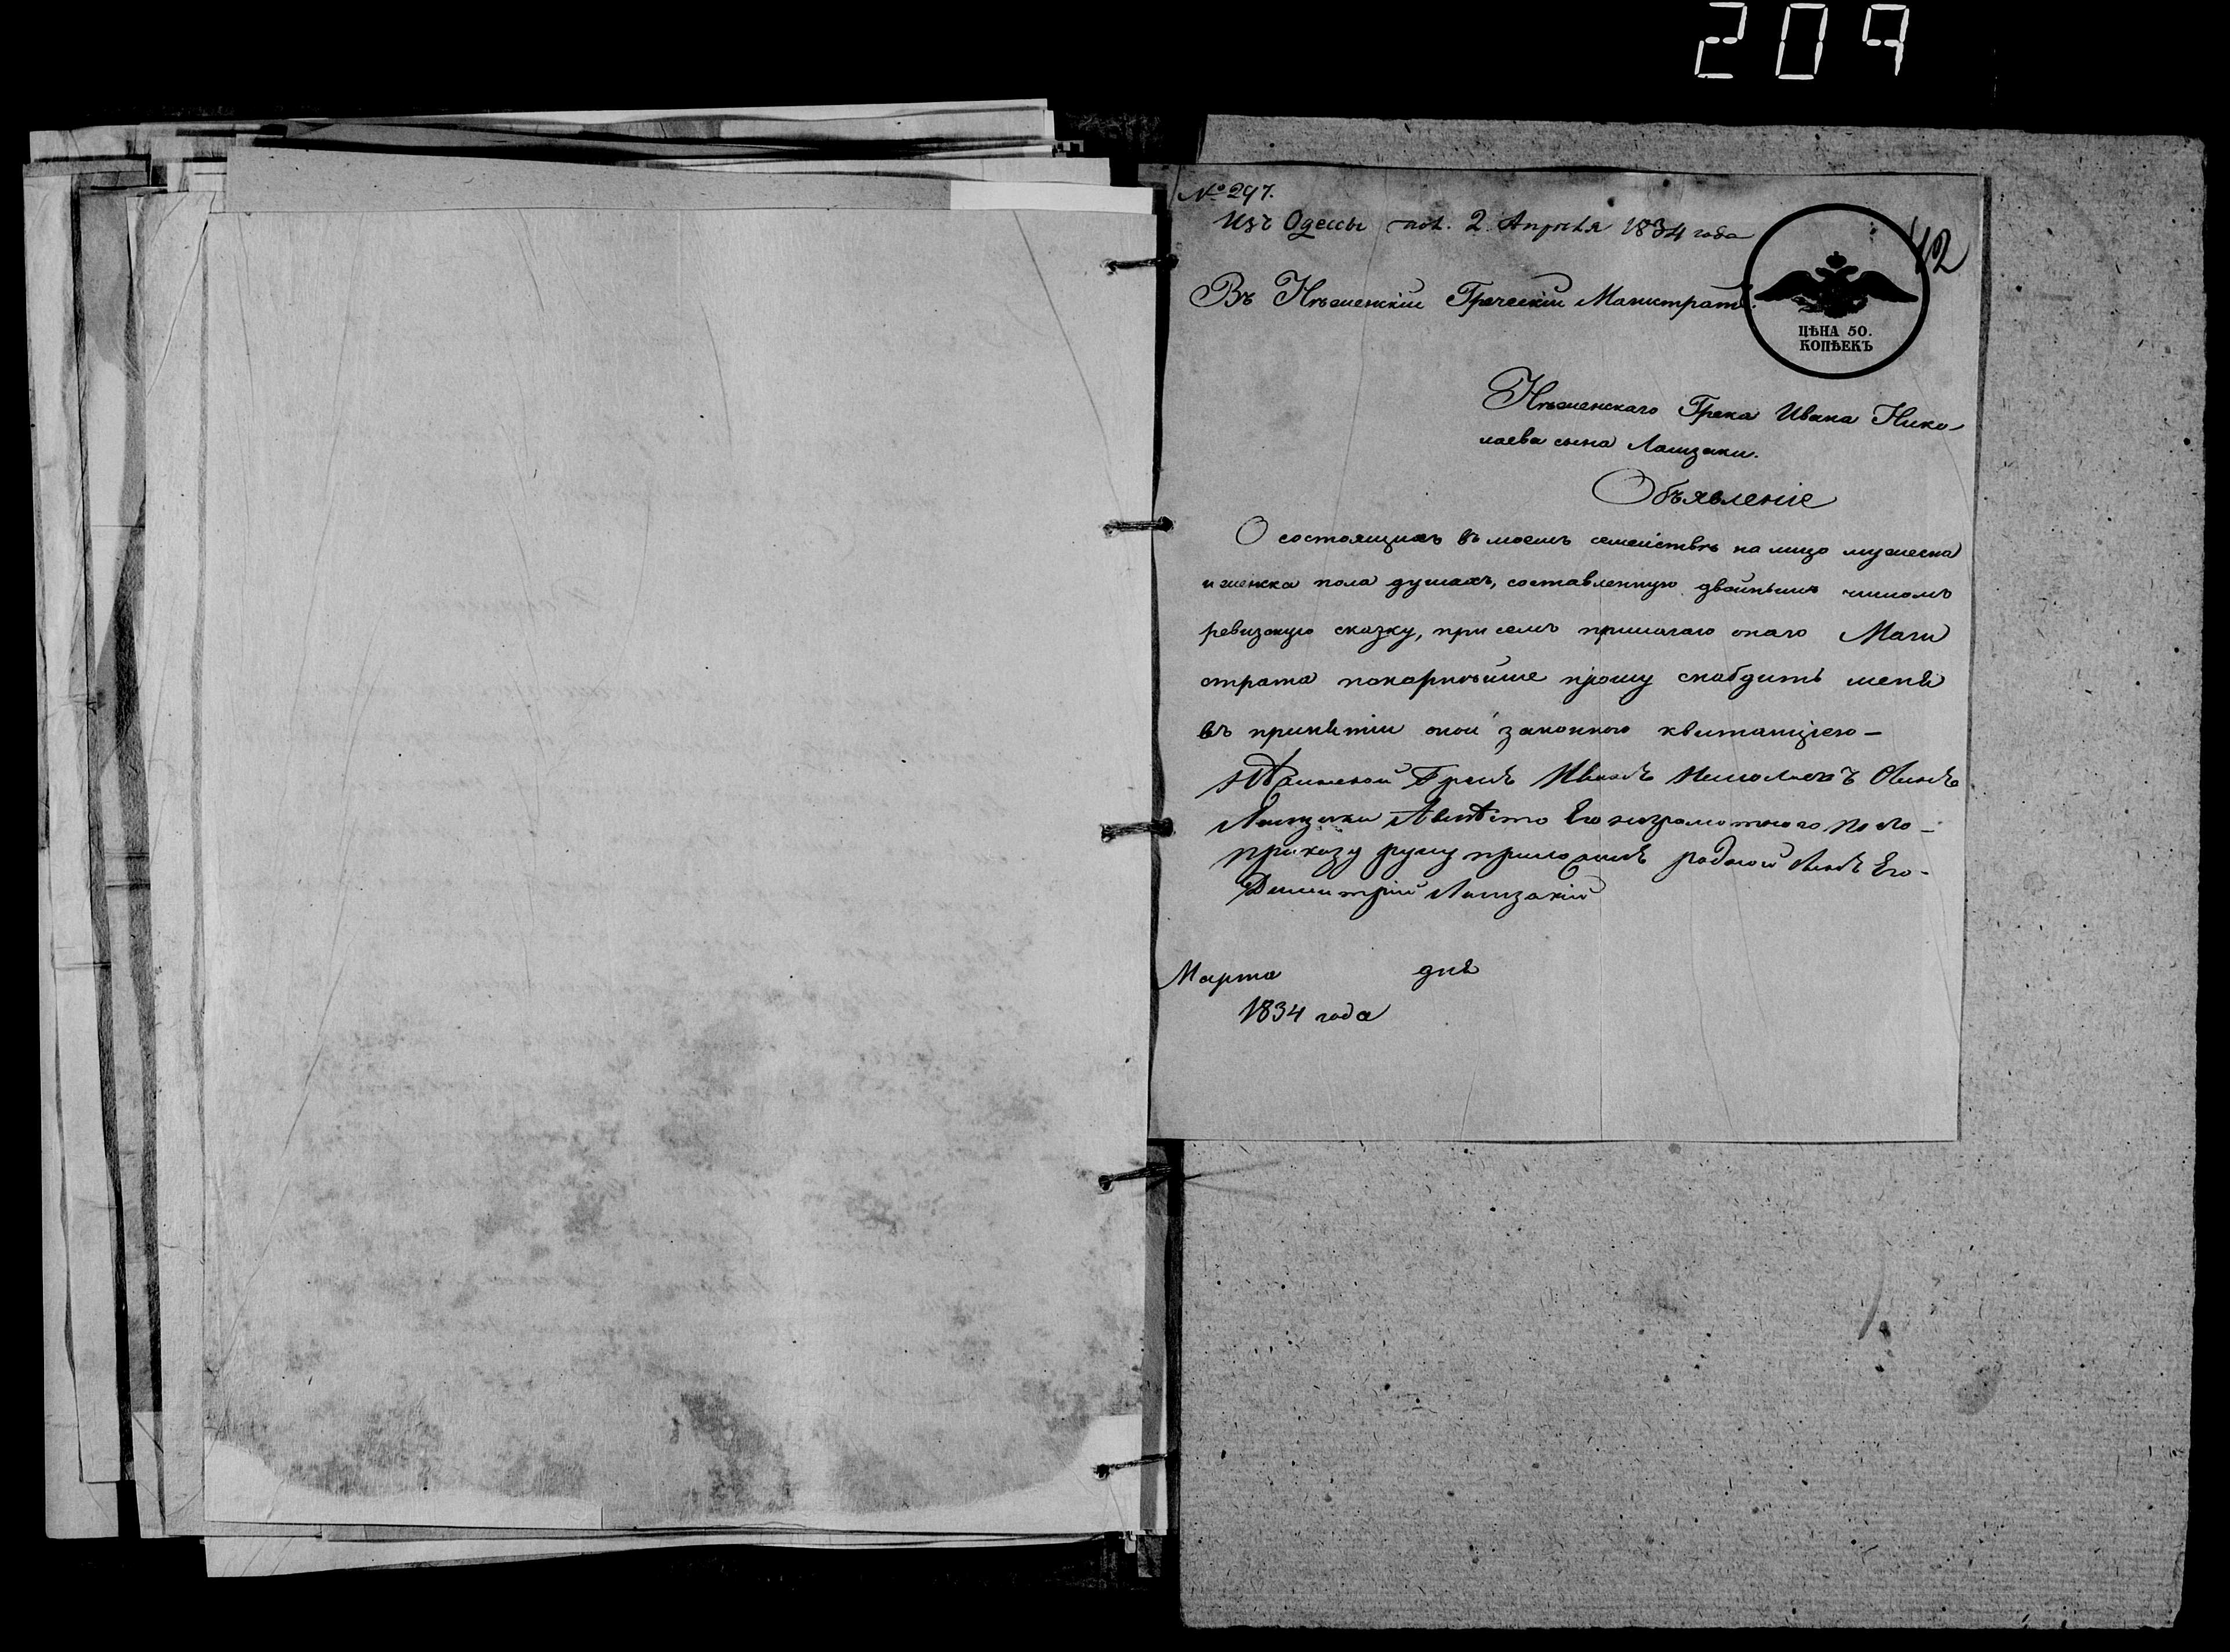 209
№ 297.
Изъ Одессы пол. 2. Апрѣля 1834 года
42
Въ Нѣженскій Греческій Магистратъ.
ЦѢНА 50.
КОПѢЕКЪ
Нѣженскаго Грека Ивана Нико
лаева сына
Объявленіе
О состоящихъ въ моемъ семействѣ на лицо мужеска
и женска пола душахъ, составленную двойнымъ числомъ
ревизскую сказку, при семъ прилагаю онаго Маги
страта покорнѣйше прошу снабдить меня
въ принятіи оной законною квитанціею —
Грекъ Иванъ Николаевъ Синъ
Вмѣсто Его неграмотного по его
приказу руку приложилъ родной Синъ Его
Димитрій
Марта дня
1834 года